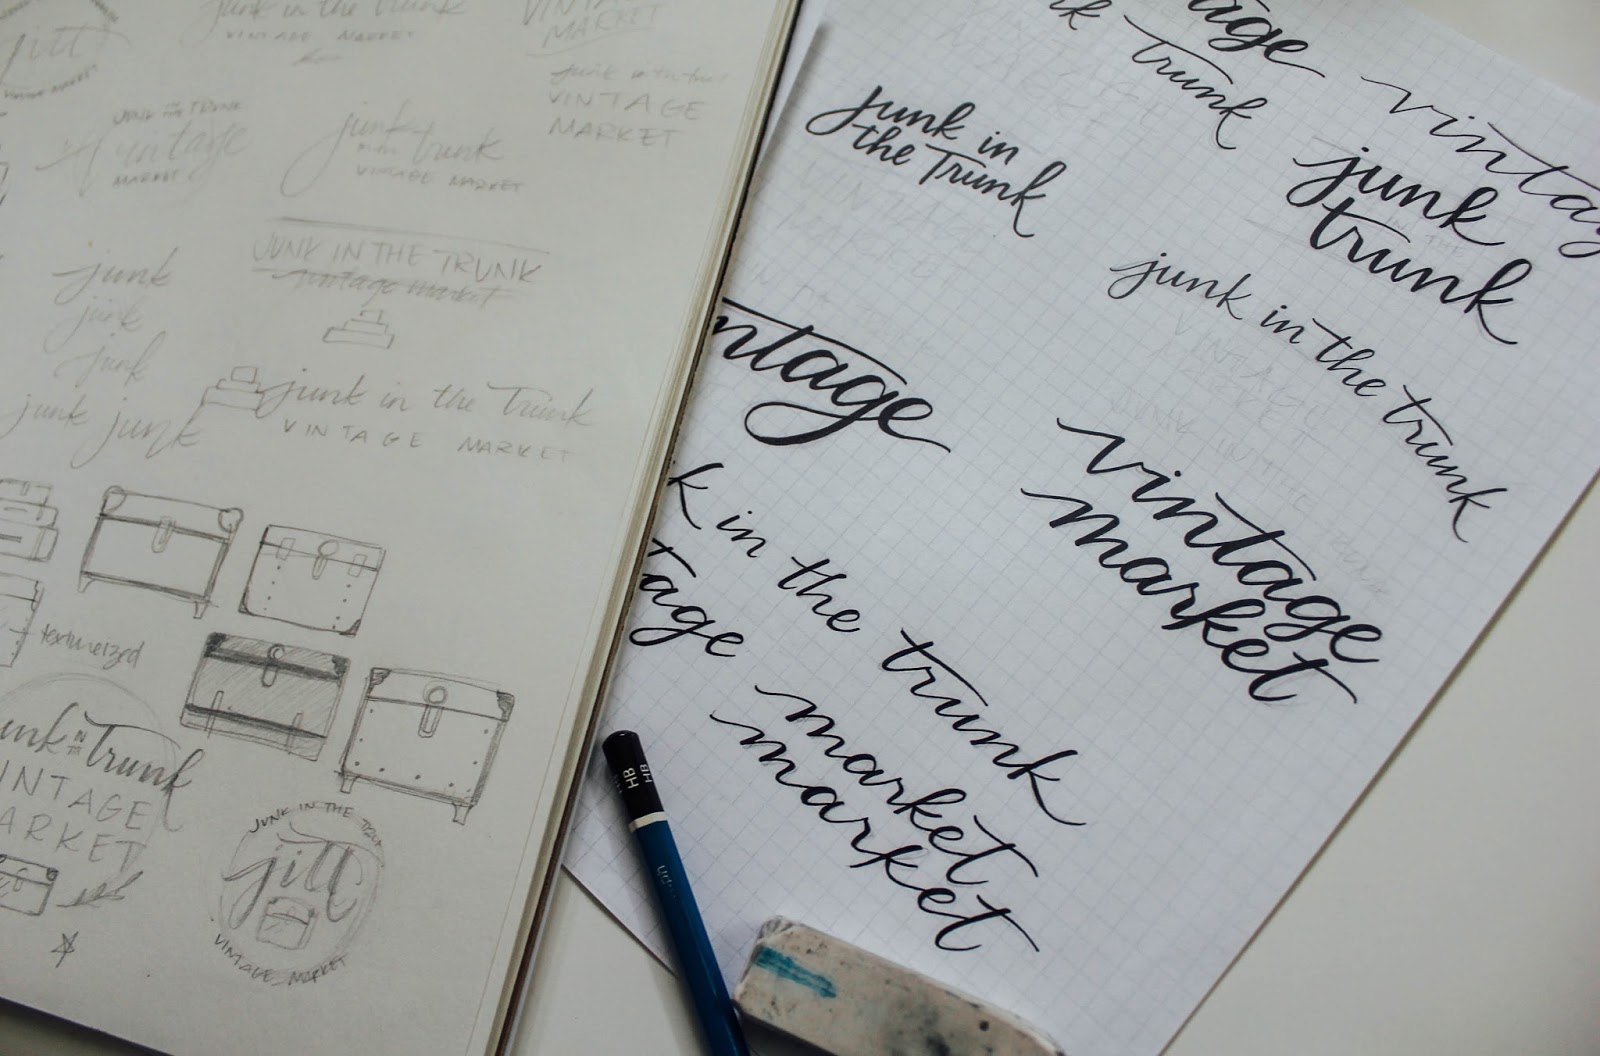 jitt
VINTAGE MARKET
junk in the trunk
VINTAGE MARKET
VINTAGE
MARKET
junk in the trunk
VINTAGE
MARKET
JUNK IN THE TRUNK
vintage
MARKET
junk
in the trunk
VINTAGE MARKET
JUNK IN THE TRUNK
vintage market
junk
junk
junk
junk junk
junk in the Trunk
VINTAGE MARKET
texturized
unk IN THE Trunk
INTAGE
ARKET
JUNK IN THE TRUNK
jitt
VINTAGE MARKET
tage
k
trunk
vintag
junk in
the Trunk
junk
IN THE
trunk
junk in the trunk
ntage
vintage
market
k in the trunk
tage
market
market
HB
HB